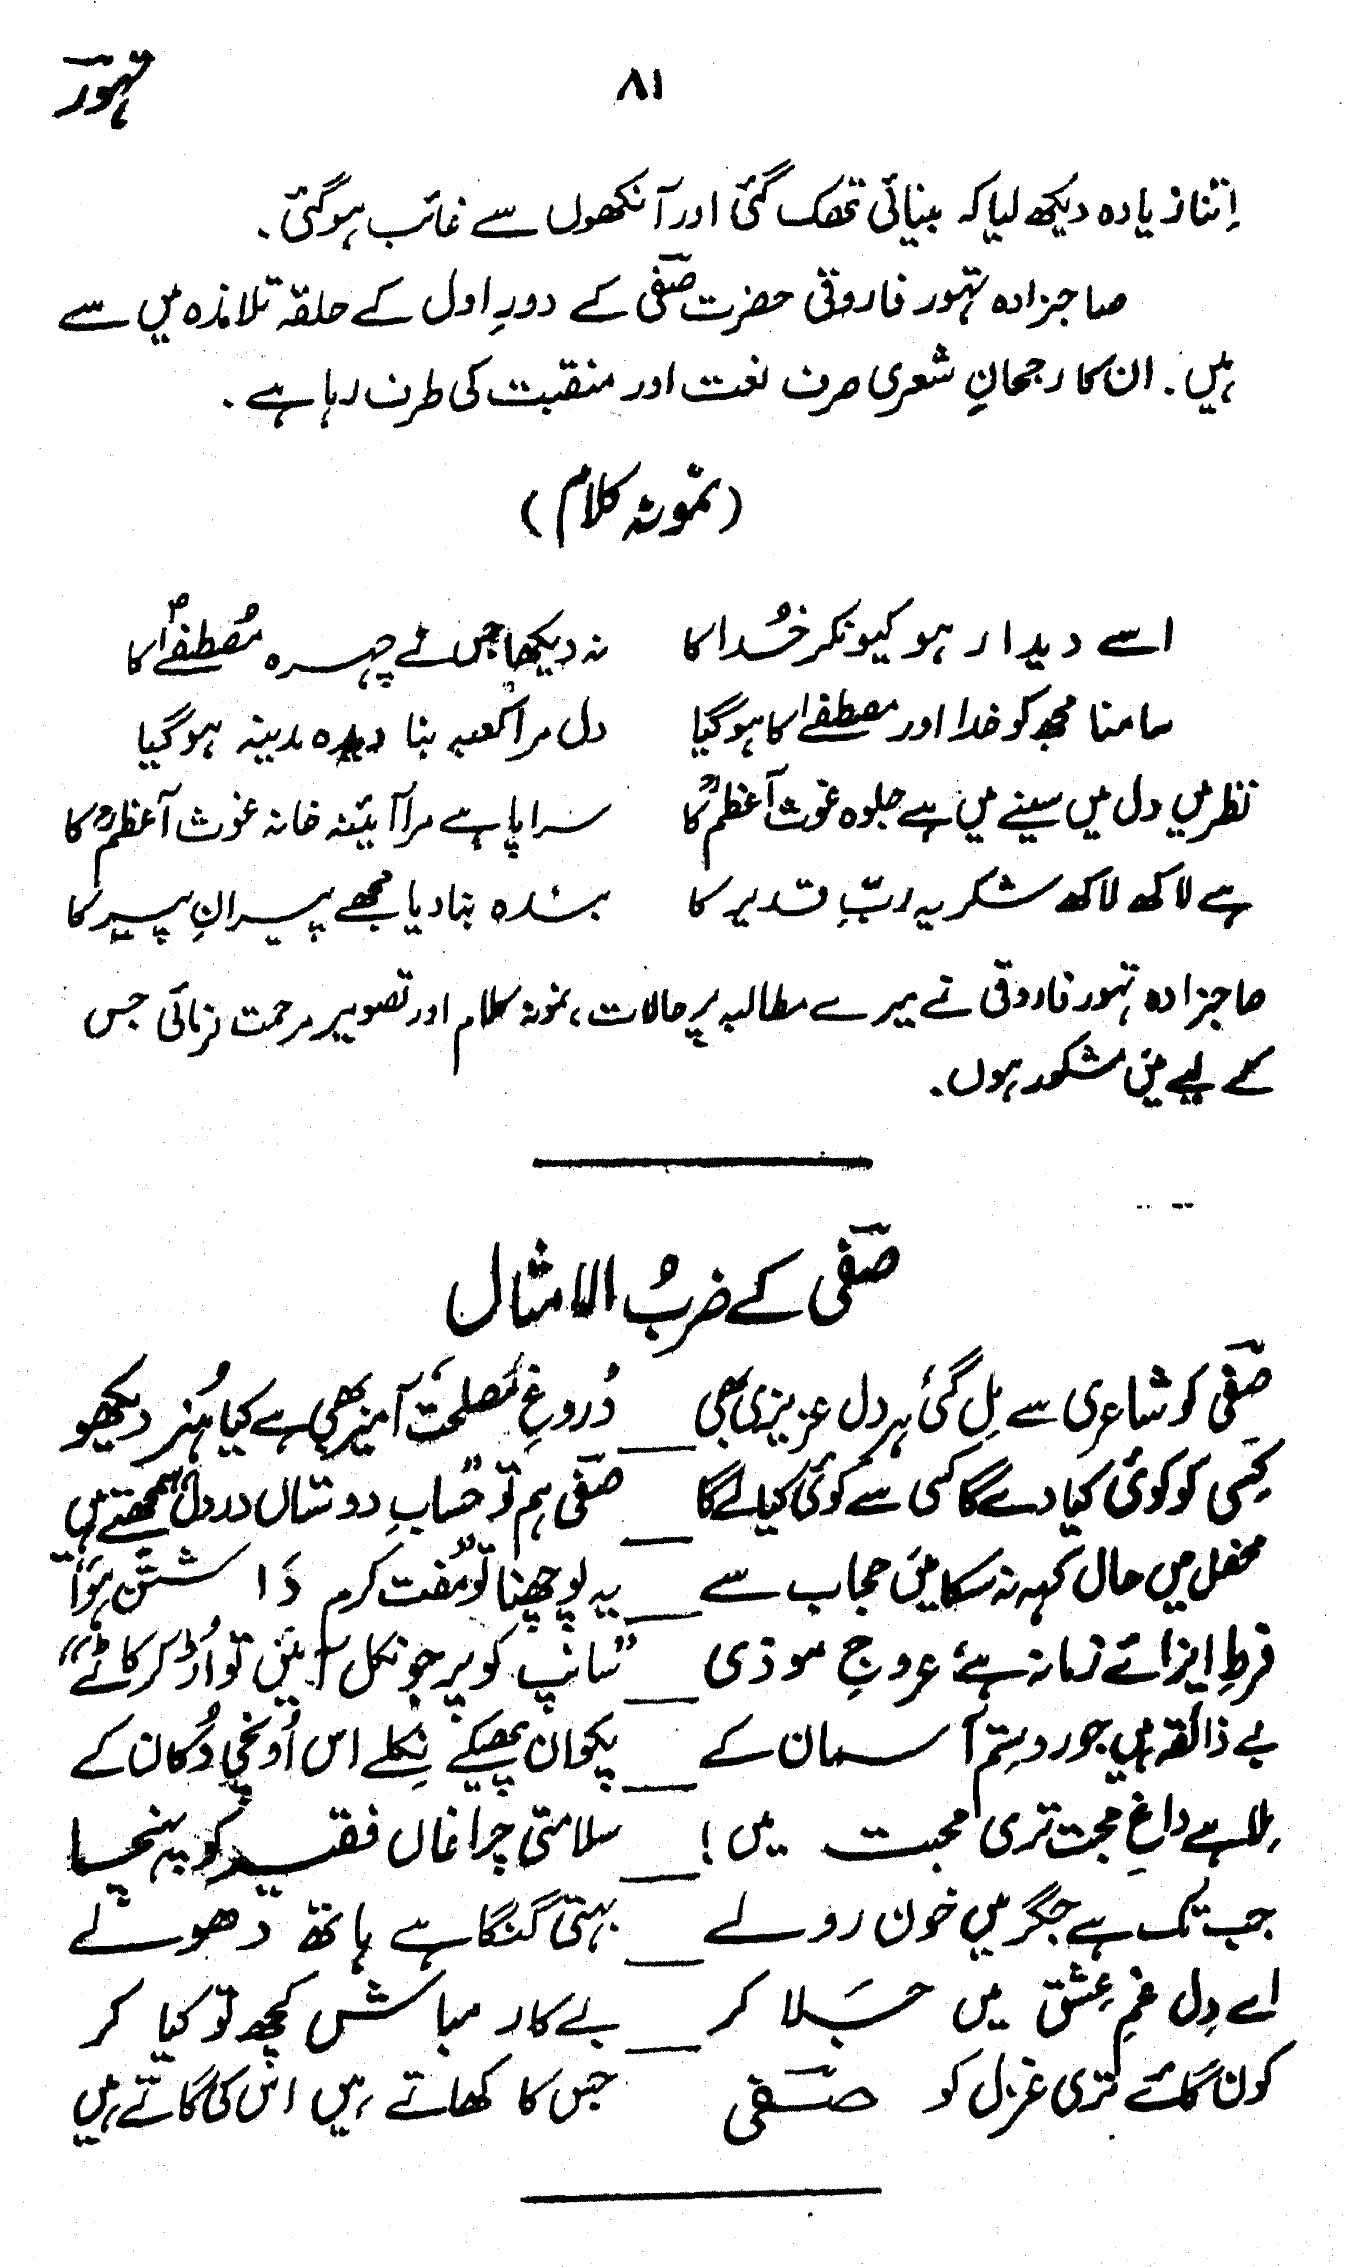 تہور
۸۱
اِتنا زیادہ دیکھ لیا کہ بینائی تھک گئی اور آنکھوں سے غائب ہو گئی۔
صاحبزادہ تہور فاروقی حضرت صفیؔ کے دورِ اول کے حلقہ تلامذہ میں سے
ہیں۔ ان کا رجحانِ شعری صرف نعت اور منقبت کی طرف رہا ہے۔
(نمونہ کلام)
اسے دیدار ہو کیونکر خُدا کا نہ دیکھا جس نے چہرہ مُصطفےٰؐ کا
سامنا مجھ کو خدا اور مصطفےٰ کا ہو گیا دل مرا کعبہ بنا دیدہ مدینہ ہو گیا
نظر میں دل میں سینے میں ہے جلوہ غوث آعظمؒ کا سراپا ہے مرا آئینہ خانہ غوث آعظمؒ کا
ہے لاکھ لاکھ شکر یہ ربِّ قدیر کا بندہ بنا دیا مجھے پیرانِ پیر کا
صاحبزادہ تہور فاروقی نے میرے مطالبہ پر حالات، نمونہ کلام اور تصویر مرحمت فرمائی جس
کے لیے میں مشکور ہوں۔
صفیؔ کے ضربُ الامثال
صفیؔ کو شاعری سے مِل گئی ہر دل عزیزی بھی __ دُروغِ مَصلحت آمیز بھی ہے کیا ہُنر دیکھو
کِسی کو کوئی کیا دے گا کسی سے کوئی کیا لے گا __ صفیؔ ہم تو "حساب دوستاں در دل" سمجھتے ہیں
محفل میں حال کہہ نہ سکا میں حجاب سے __ یہ پوچھنا تو "مُفت کرم داشتن" ہُوا
فرطِ ایذائے زمانہ ہے، عروجِ موذی __ "سانپ کو پر جو نکل آئیں تو اُڑ کر کاٹے"
بے ذائقہ ہیں جور و ستم آسمان کے __ پکوان پھیکے نِکلے اس اُونچی دُکان کے
مِلا ہے داغِ محبت تری محبت میں! __ سلامتی چراغاں فقیر کو پہنچا
جب تک ہے جگر میں خون رولے __ بہتی گنگا ہے ہاتھ دھولے
اے دِل غمِ عِشق میں جَلا کر __ بے کار مباش کچھ تو کیا کر
کون گائے تری غزل کو صفیؔ جس کا کھاتے ہیں اس کی گاتے ہیں